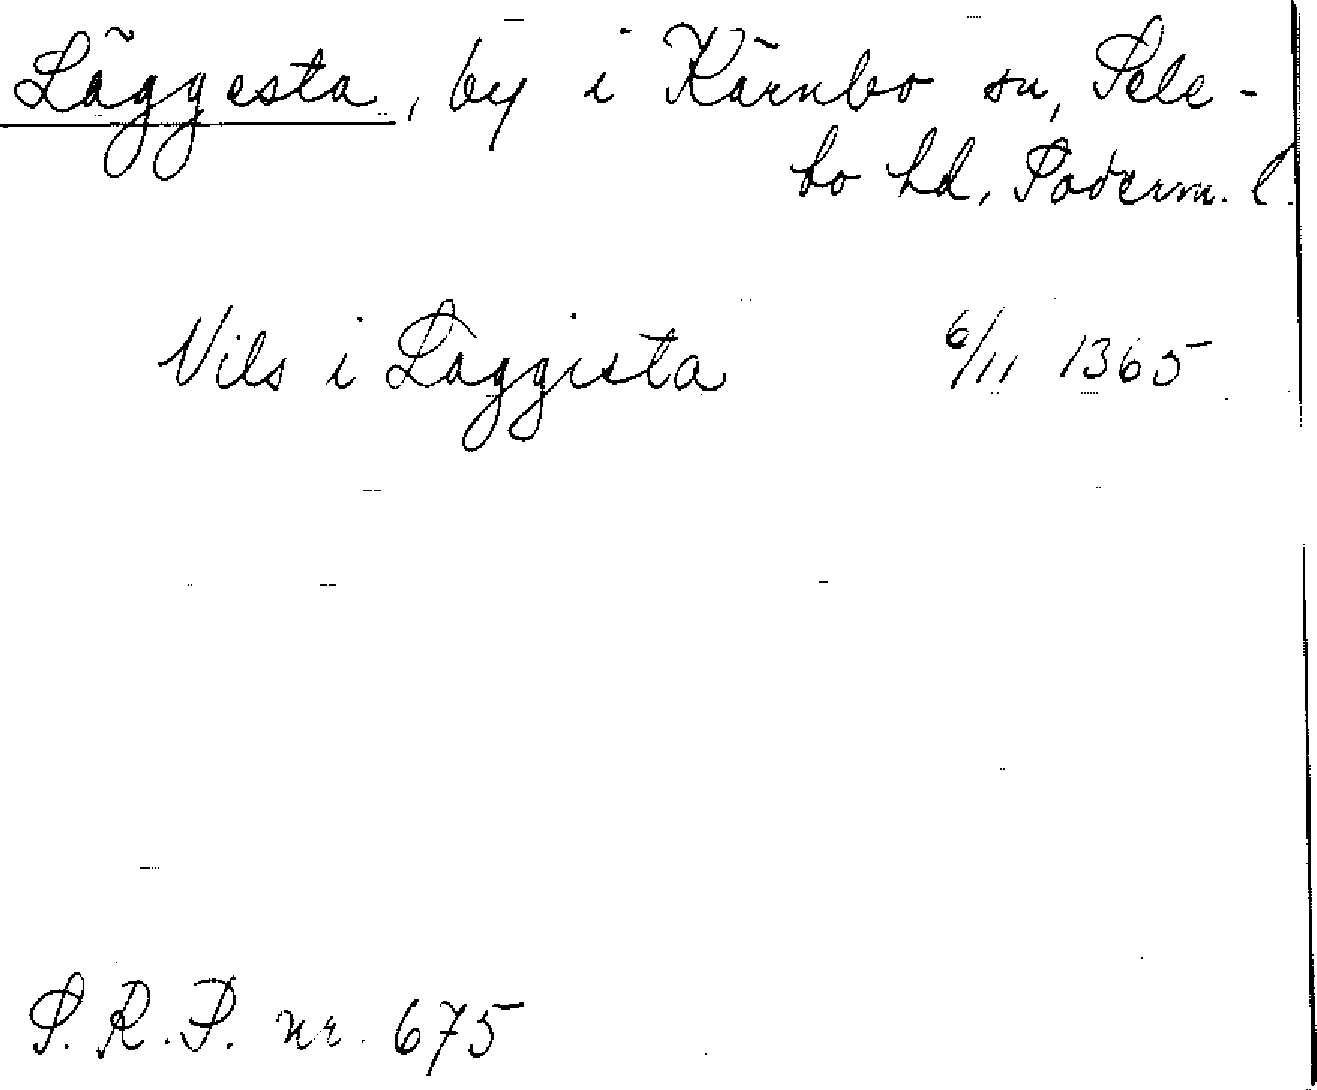 Läggesta, by i Kärnbo sn, Sele-
bo hd, Söderm. l.
Nils i Lággista 6/11 1365
S. R. P. nr. 675